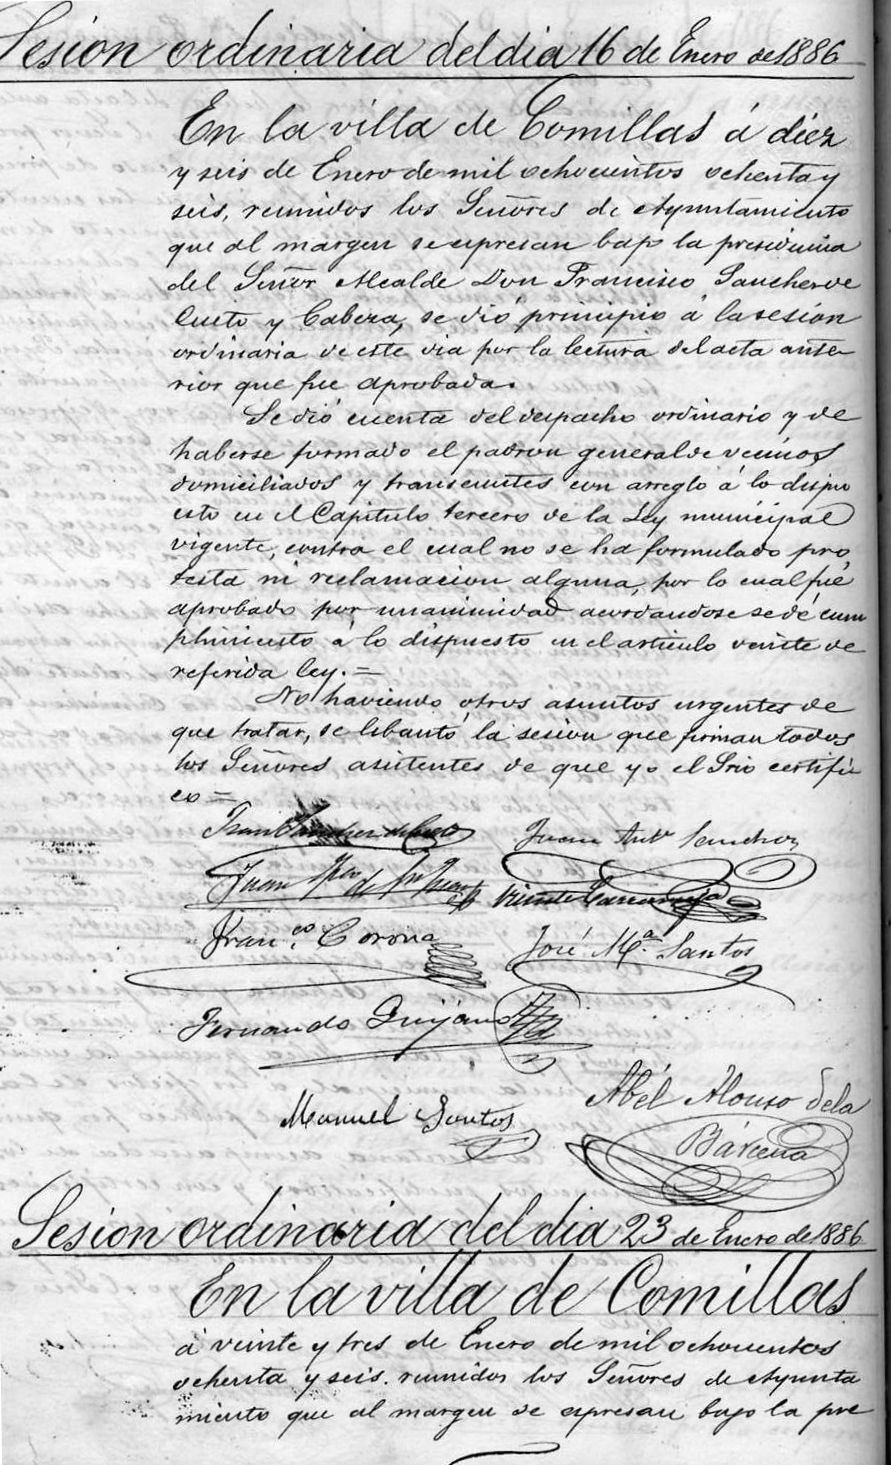 Sesion ordinaria del dia 16 de Enero de 1886
En la villa de Comillas á diez
y seis de Enero de mil ochocientos ochenta y
seis, reunidos los Señores de Ayuntamiento
que al margen se espresan bajo la presidencia
del Señor Alcalde Don Francisco Sanchez de
Cueto y Cabeza, se dió principio á la sesion
ordinaria de este dia por la lectura del acta ante
rior que fue aprobada.
Se dió cuenta del despacho ordinario y de
haberse formado el padron general de vecinos
domiciliados y transeuntes con arreglo á lo dispu
esto en el Capitulo tercero de la Ley municipal
vigente, contra el cual no se ha formulado pro
testa ni reclamacion alguna, por lo cual fué
aprobado por unanimidad acordandose se dé cum
plimiento á lo dispuesto en el articulo veinte de
referida ley. =
No haviendo otros asuntos urgentes de
que tratar, se lebantó la sesion que firman todos
los Señores asistentes de que yo el Srio certifi
co =
Fran Sanchez de Cueto
Juan Ant Sanchez
Juan de
Vicente
Franco Corona
José Ma Santos
Fernando Quijano
Abél Alonso de la
Manuel Santos
Bárcena
Sesion ordinaria del dia 23 de Enero de 1886
En la villa de Comillas
á veinte y tres de Enero de mil ochocientos
ochenta y seis. reunidos los Señores de Ayunta
miento que al margen se espresan bajo la pre